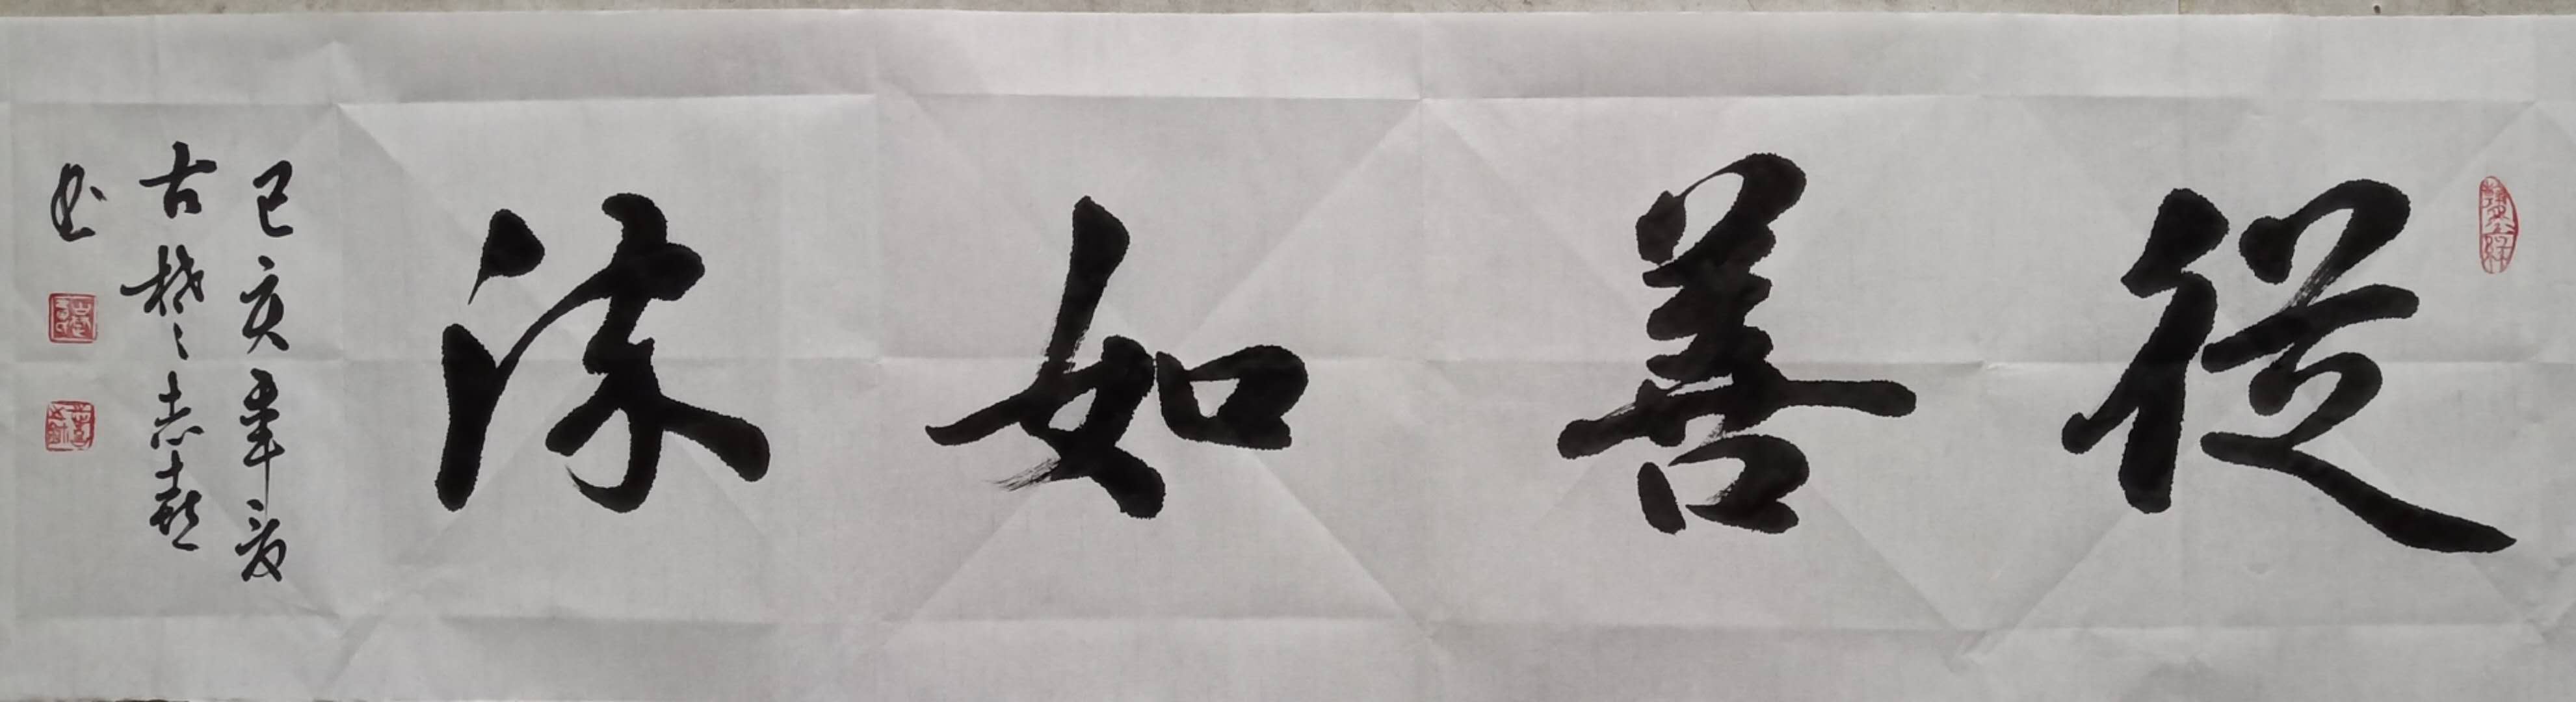 從善如流
己亥年夏
古槐志喜
书